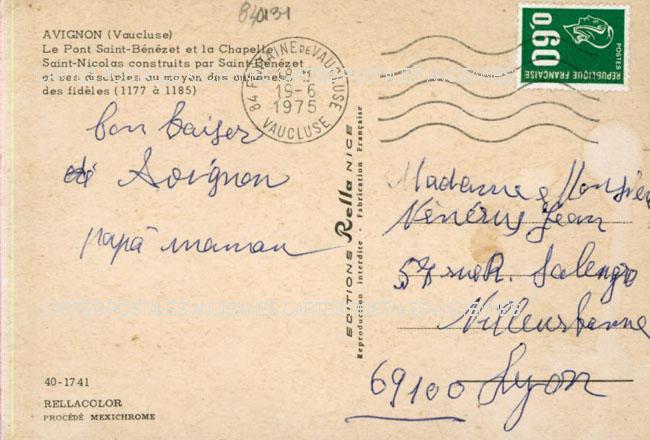 840131
AVIGNON (Vaucluse)
Le Pont Saint-Bénézet et la Chapelle
Saint-Nicolas construits par Saint-Bénézet
et ses disciples au moyen des aumônes
des fidèles (1177 à 1185)
84 FONTAINE DE VAUCLUSE
19-6
1975
VAUCLUSE
0,60
POSTES
REPUBLIQUE FRANÇAISE
bon baiser
de Avignon
papa maman
EDITIONS Rella NICE
Reproduction interdite - Fabrication Française
Madame Monsieur
Jean
57 rue R. Salengro
Villeurbanne
69100 Lyon
40-1741
RELLACOLOR
PROCÉDÉ MEXICHROME